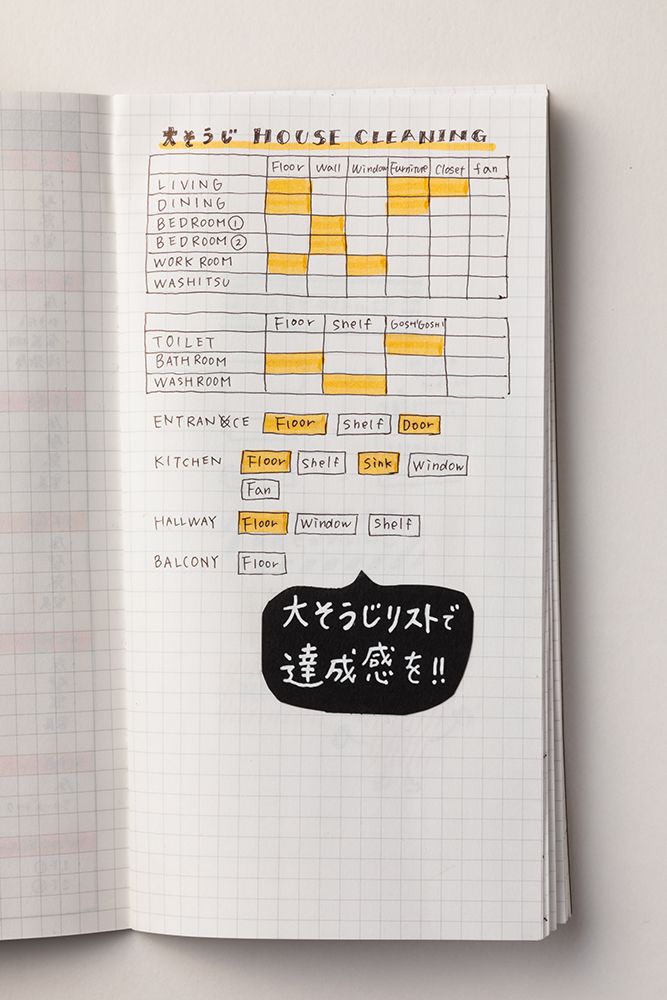 大そうじ HOUSE CLEANING
Floor Wall Window Furniture Closet fan
LIVING
DINING
BEDROOM①
BEDROOM②
WORK ROOM
WASHITSU
Floor Shelf GOSHIGOSHI
TOILET
BATHROOM
WASHROOM
ENTRANCE Floor Shelf Door
KITCHEN Floor Shelf Sink Window
Fan
HALLWAY Floor Window Shelf
BALCONY Floor
大そうじリストで
達成感を!!